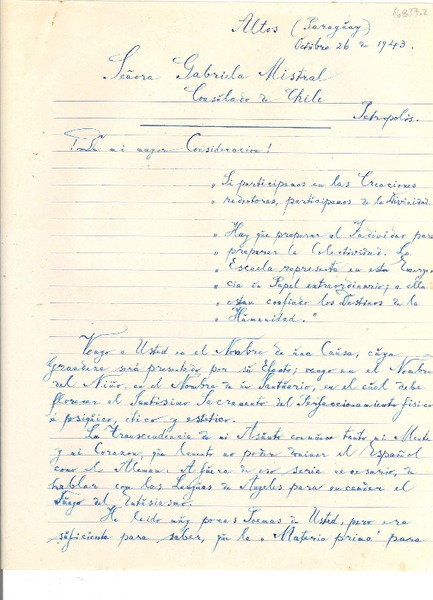 16837-2
Altos (Paraguay)
Octubre 26 de 1943.
Señora Gabriela Mistral
Consúlado de Chile
Petropolis.
¡De mi mayor Consideracion!
" Si participamos en las Creaciones
redentoras, participamos de la Divinidad.
" Hay que preparar el Individuo para
preparar la Colectividad. La
Escuela representa en esta Emergen
cia ún Papel extraordinario; a ella
estan confiado los Destinos de la
Húmanidad."
Vengo a Usted en el Nombre de úna Caúsa, cúya
Grandeza será presentado por sú Efecto, vengo en el Nombre
del Niño, en el Nombre de ún Santúario, en el cúal debe
florecer el Santisimo Sacramento del Perfeccionamiento fisico
é psiqúico, ético y estético.
La Transcendencia de mi Asúnto conmúeve tanto mi Mente
y mi Corazon, qúe lamento no poder dominar el Español
como el Aleman. A fúera de eso seria necesario, de
hablar con las Lengúas de Angeles para encender el
Fúego del Entúsiasmo.
He leido múy pocos Poemas de Usted, pero era
súficiente para saber, qúe la "Materia prima" para